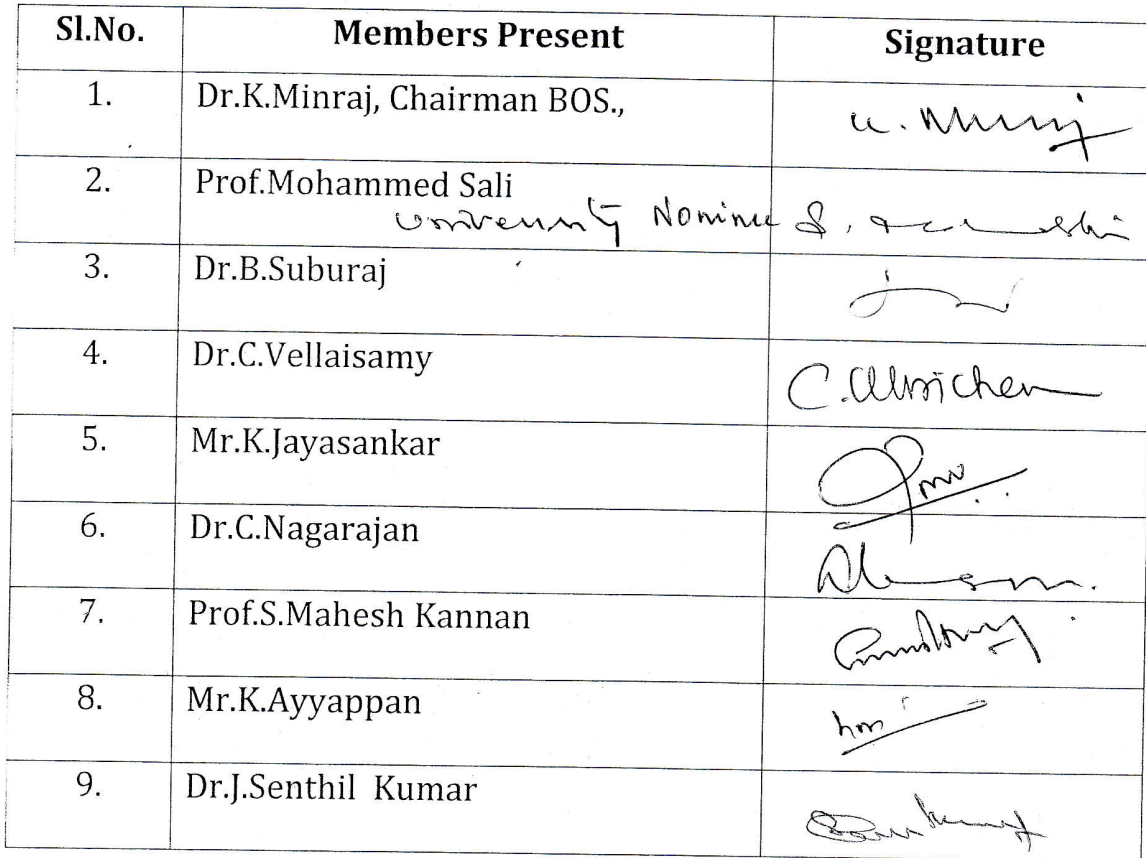 Sl.No. Members Present Signature
1. Dr.K.Minraj, Chairman BOS.,
2. Prof.Mohammed Sali
University Nominee
3. Dr.B.Suburaj
4. Dr.C.Vellaisamy
5. Mr.K.Jayasankar
6. Dr.C.Nagarajan
7. Prof.S.Mahesh Kannan
8. Mr.K.Ayyappan
9. Dr.J.Senthil Kumar